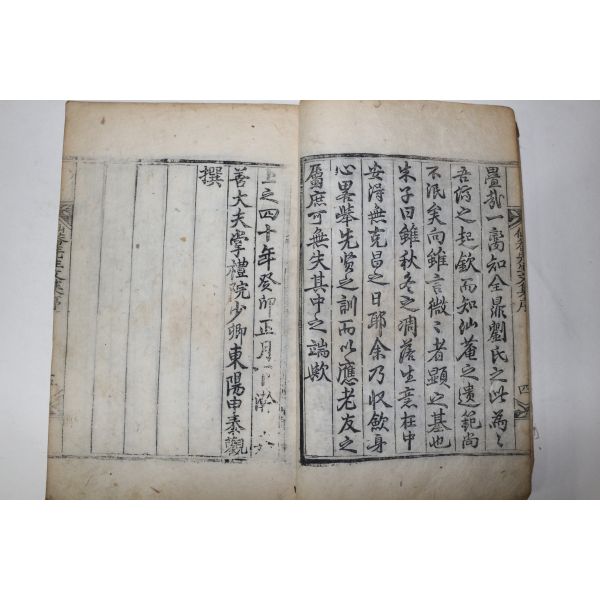 疊亂一臠知全鼎劉氏之此爲〻
吾何之起欽而知汕菴之遺範尚
不泯矣向雖言微〻者顯之基也
朱子曰雖秋冬之凋落生意在中
安得無克昌之日耶余乃収飲身
心畧擧先賢之訓而以應老友之
屬庶可無失其中之端歟
上之四十年癸卯正月
善大夫掌禮院少卿東陽申泰觀
撰
四